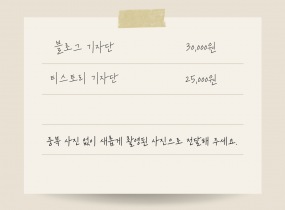 블로그 기자단 30,000원
티스토리 기자단 25,000원
중복 사진 없이 새롭게 촬영된 사진으로 전달해 주세요.